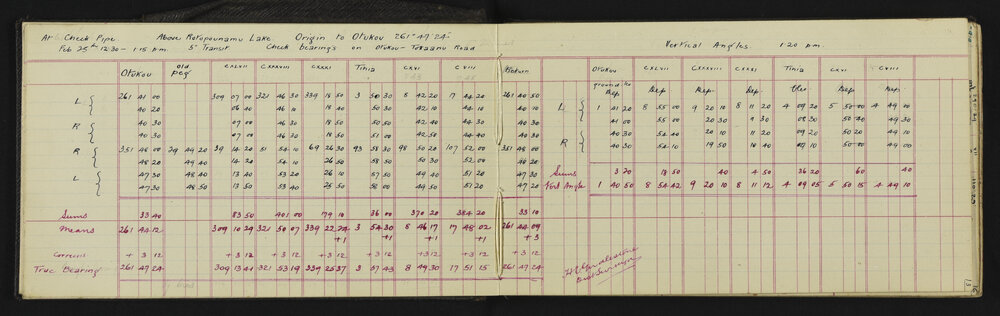 At Check Pipe Above Rotopounamu Lake Origin to Otukou 261°47'24"
Feb 25th 12:30 - 1:15 p.m. 5" Transit Check bearings on Otukou - Tokaanu Road Vertical Angles 1.20 p.m.
Otukou old peg CXLVII CXXXVIII CXXXI Tihia CXVI CVIII Return Otukou CXLVII CXXXVIII CXXXI Tihia CXVI CVIII
ground line Dep. Dep. Dep. Dep. Elev. Dep. Dep.
L 261 41 00 309 07 00 321 46 30 339 18 50 3 50 30 8 42 20 17 44 20 261 40 50 L 1 41 20 8 55 00 9 20 10 8 11 20 4 09 20 5 50 00 4 49 00
40 20 06 40 46 10 18 40 50 30 42 10 44 10 40 10 41 00 55 00 20 30 11 30 08 30 50 40 49 30
R 40 30 07 00 46 30 18 50 50 50 42 40 44 30 40 30 R 40 30 54 40 20 10 11 20 09 20 50 20 49 10
40 30 07 00 46 10 18 50 51 00 42 50 44 40 40 30 40 30 54 10 19 50 10 40 09 10 50 00 49 00
R 351 48 00 29 49 20 39 14 20 51 54 10 69 26 30 93 58 30 98 50 20 107 52 00 351 48 00
48 20 49 40 14 20 54 10 26 50 58 30 50 30 52 00 48 20 Sums 3 20 18 50 40 4 50 36 20 60 40
L 47 30 48 40 13 40 53 20 26 10 57 50 49 40 51 20 47 30 Vert Angle 1 40 50 8 54 42 9 20 10 8 11 12 4 09 05 5 50 15 4 49 10
47 30 48 50 13 50 53 40 25 50 58 00 49 50 51 20 47 20
Sums 33 40 83 50 401 00 79 10 36 00 370 20 384 20 33 10
Means 261 44 12 309 10 29 321 50 07 339 22 24 3 54 30 8 46 17 17 48 02 261 44 09
+1 +1 +1 +1 +3
Correcns + 3 12 + 3 12 + 3 12 + 3 12 + 3 12 + 3 12 + 3 12 + 3 12
True Bearing 261 47 24 309 13 41 321 53 19 339 25 37 3 57 43 8 49 30 17 51 15 261 47 24